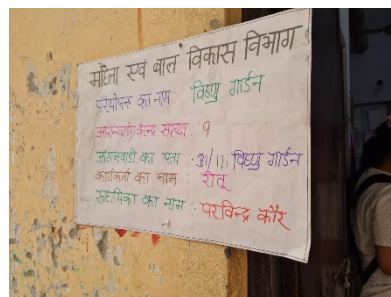 महिला एवं बाल विकास विभाग
परियोजना का नाम विष्णु गार्डन
आंगनवाडी केन्द्र संख्या : 9
आंगनवाडी का पता : विष्णु गार्डन
कार्यकर्ता का नाम : रीतू
सहायिका का नाम : परविन्द्र कौर